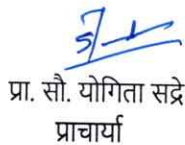 प्रा. सौ. योगिता सद्रे
प्राचार्या